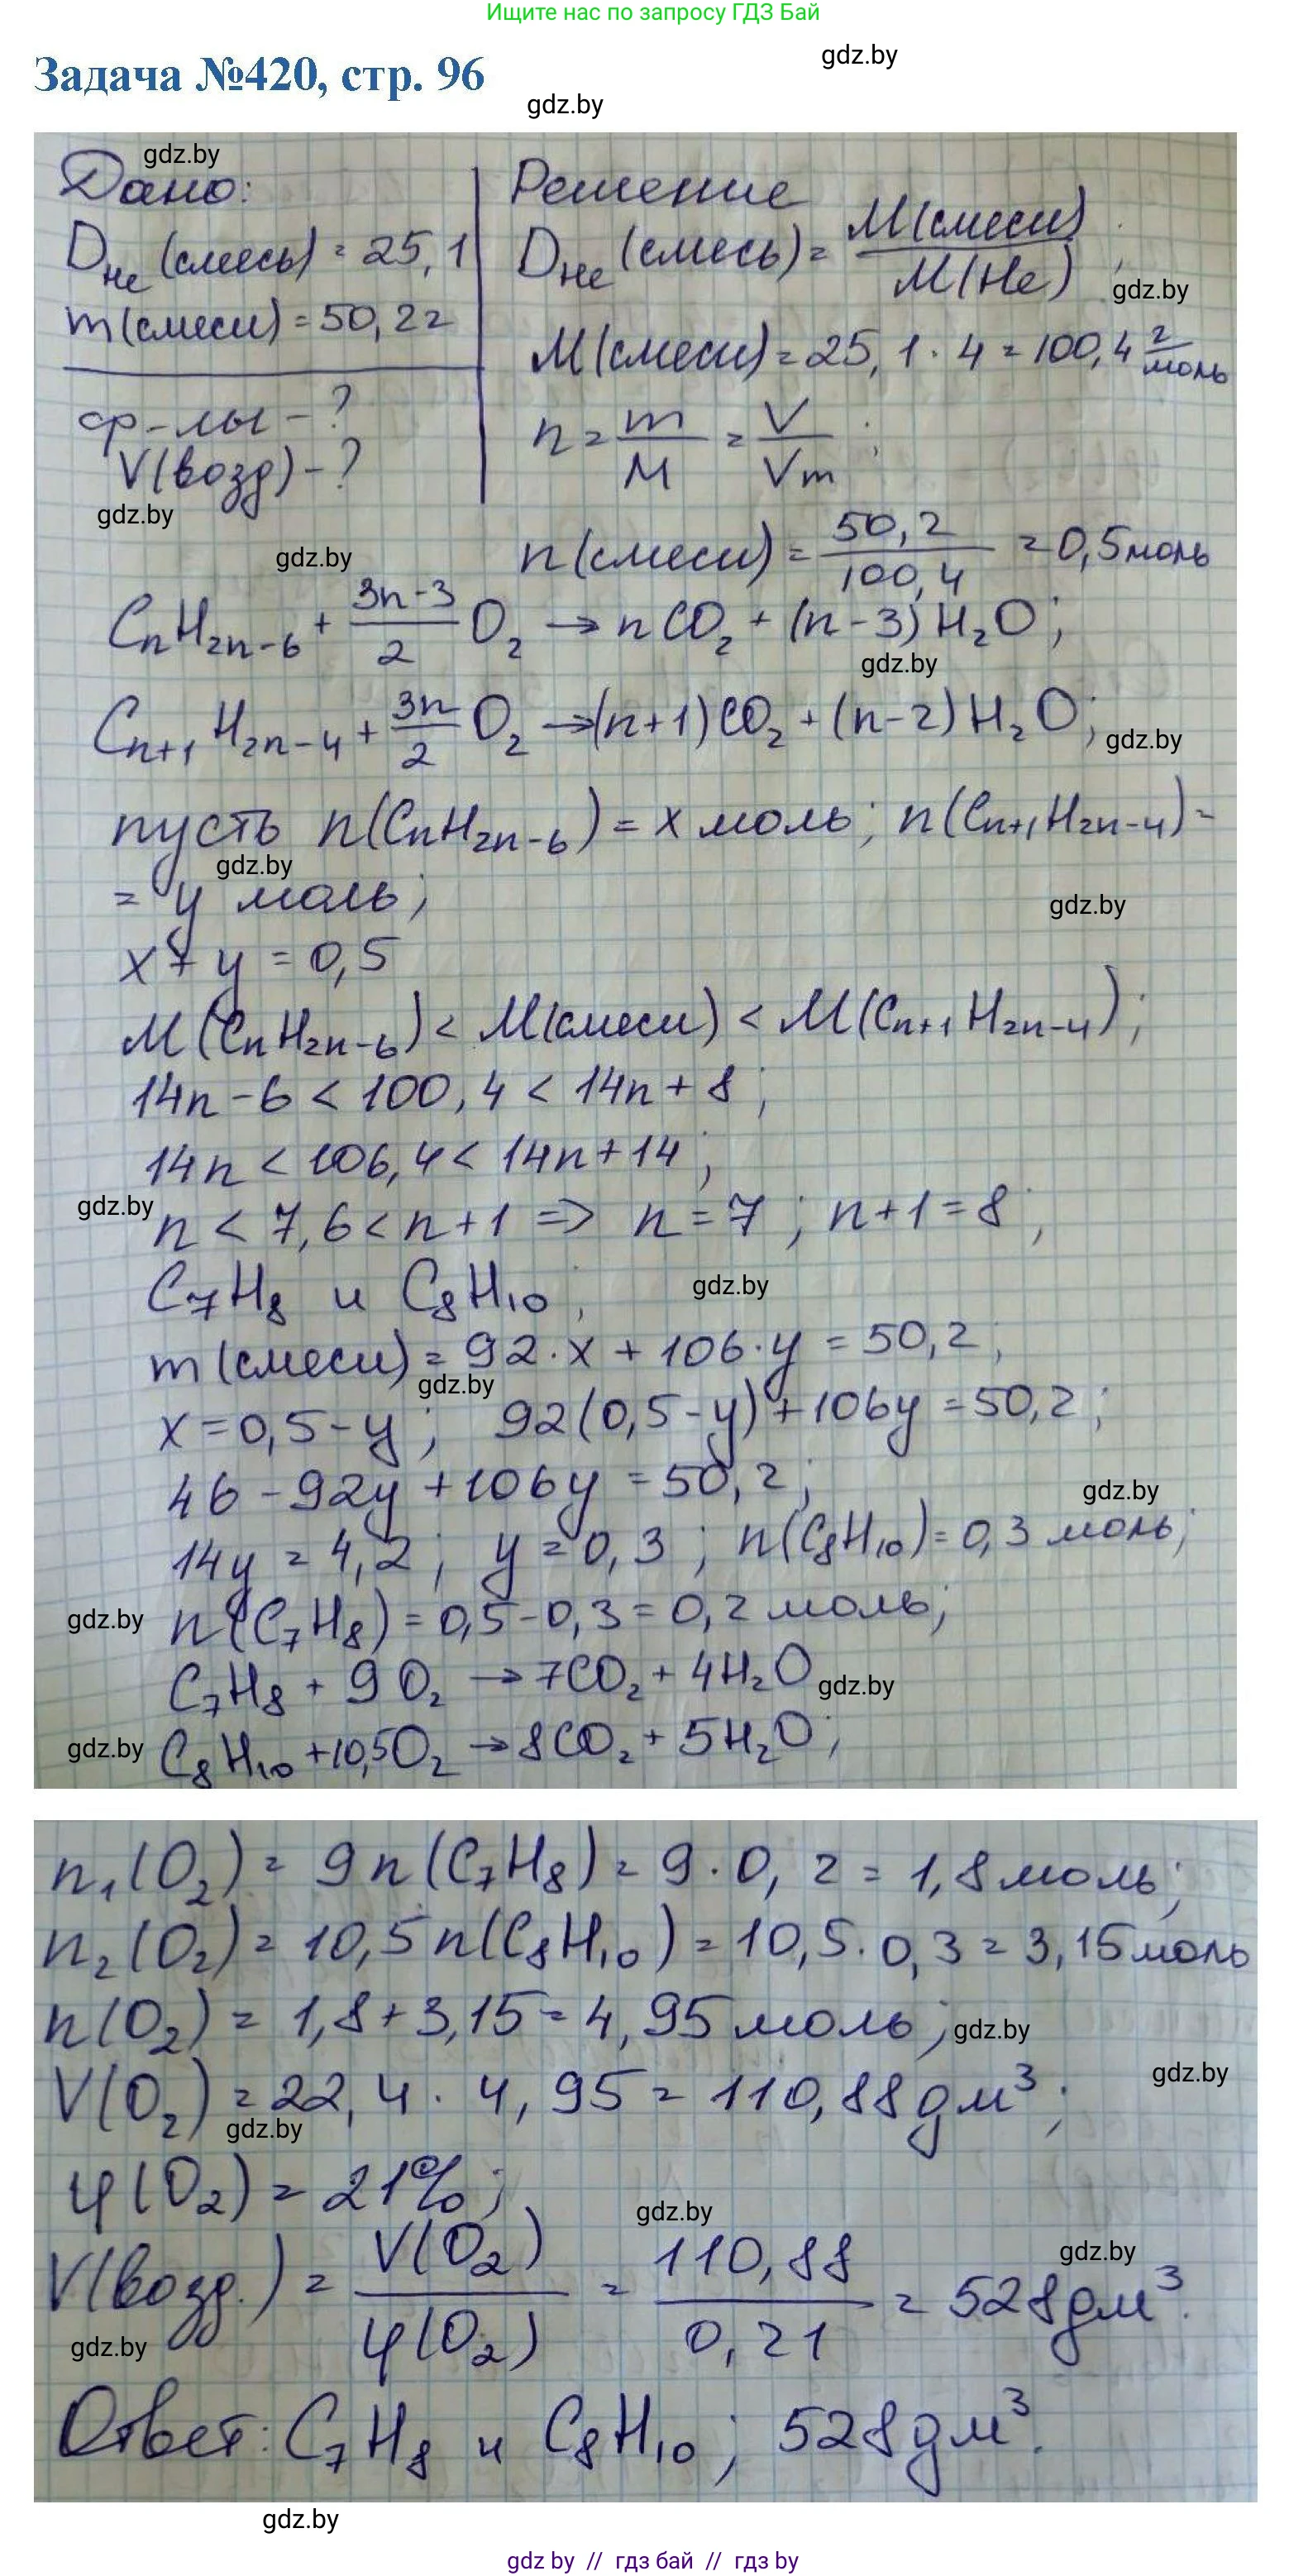 Ищите нас по запросу ГДЗ Бай
gdz.by
Задача №420, стр. 96
gdz.by
gdz.by
Дано:
D_He (смесь) = 25,1
m(смеси) = 50,2 г
ф-лы - ?
V(возд) - ?
gdz.by
Решение
D_He (смесь) = M(смеси) / M(He) ;
gdz.by
M(смеси) = 25,1 · 4 = 100,4 г/моль
n = m/M = V/Vm ;
gdz.by
n(смеси) = 50,2 / 100,4 = 0,5 моль
CnH2n-6 + (3n-3)/2 O2 → nCO2 + (n-3)H2O;
gdz.by
Cn+1H2n-4 + 3n/2 O2 → (n+1)CO2 + (n-2)H2O;
gdz.by
пусть n(CnH2n-6) = x моль; n(Cn+1H2n-4) =
gdz.by
= y моль;
gdz.by
x + y = 0,5
M(CnH2n-6) < M(смеси) < M(Cn+1H2n-4);
14n - 6 < 100,4 < 14n + 8;
14n < 106,4 < 14n + 14;
gdz.by
n < 7,6 < n+1 => n = 7; n+1 = 8;
C7H8 и C8H10;
gdz.by
m(смеси) = 92·x + 106·y = 50,2;
gdz.by
x = 0,5 - y; 92(0,5 - y) + 106y = 50,2;
46 - 92y + 106y = 50,2;
gdz.by
14y = 4,2; y = 0,3; n(C8H10) = 0,3 моль;
gdz.by
n(C7H8) = 0,5 - 0,3 = 0,2 моль;
C7H8 + 9O2 → 7CO2 + 4H2O
gdz.by
gdz.by
C8H10 + 10,5O2 → 8CO2 + 5H2O;
n1(O2) = 9n(C7H8) = 9·0,2 = 1,8 моль;
n2(O2) = 10,5n(C8H10) = 10,5·0,3 = 3,15 моль
n(O2) = 1,8 + 3,15 = 4,95 моль;
gdz.by
gdz.by
V(O2) = 22,4 · 4,95 = 110,88 дм³;
gdz.by
φ(O2) = 21%;
gdz.by
V(возд.) = V(O2) / φ(O2) = 110,88 / 0,21 = 528 дм³.
gdz.by
gdz.by
Ответ: C7H8 и C8H10; 528 дм³.
gdz.by
gdz by // гдз бай // гдз by